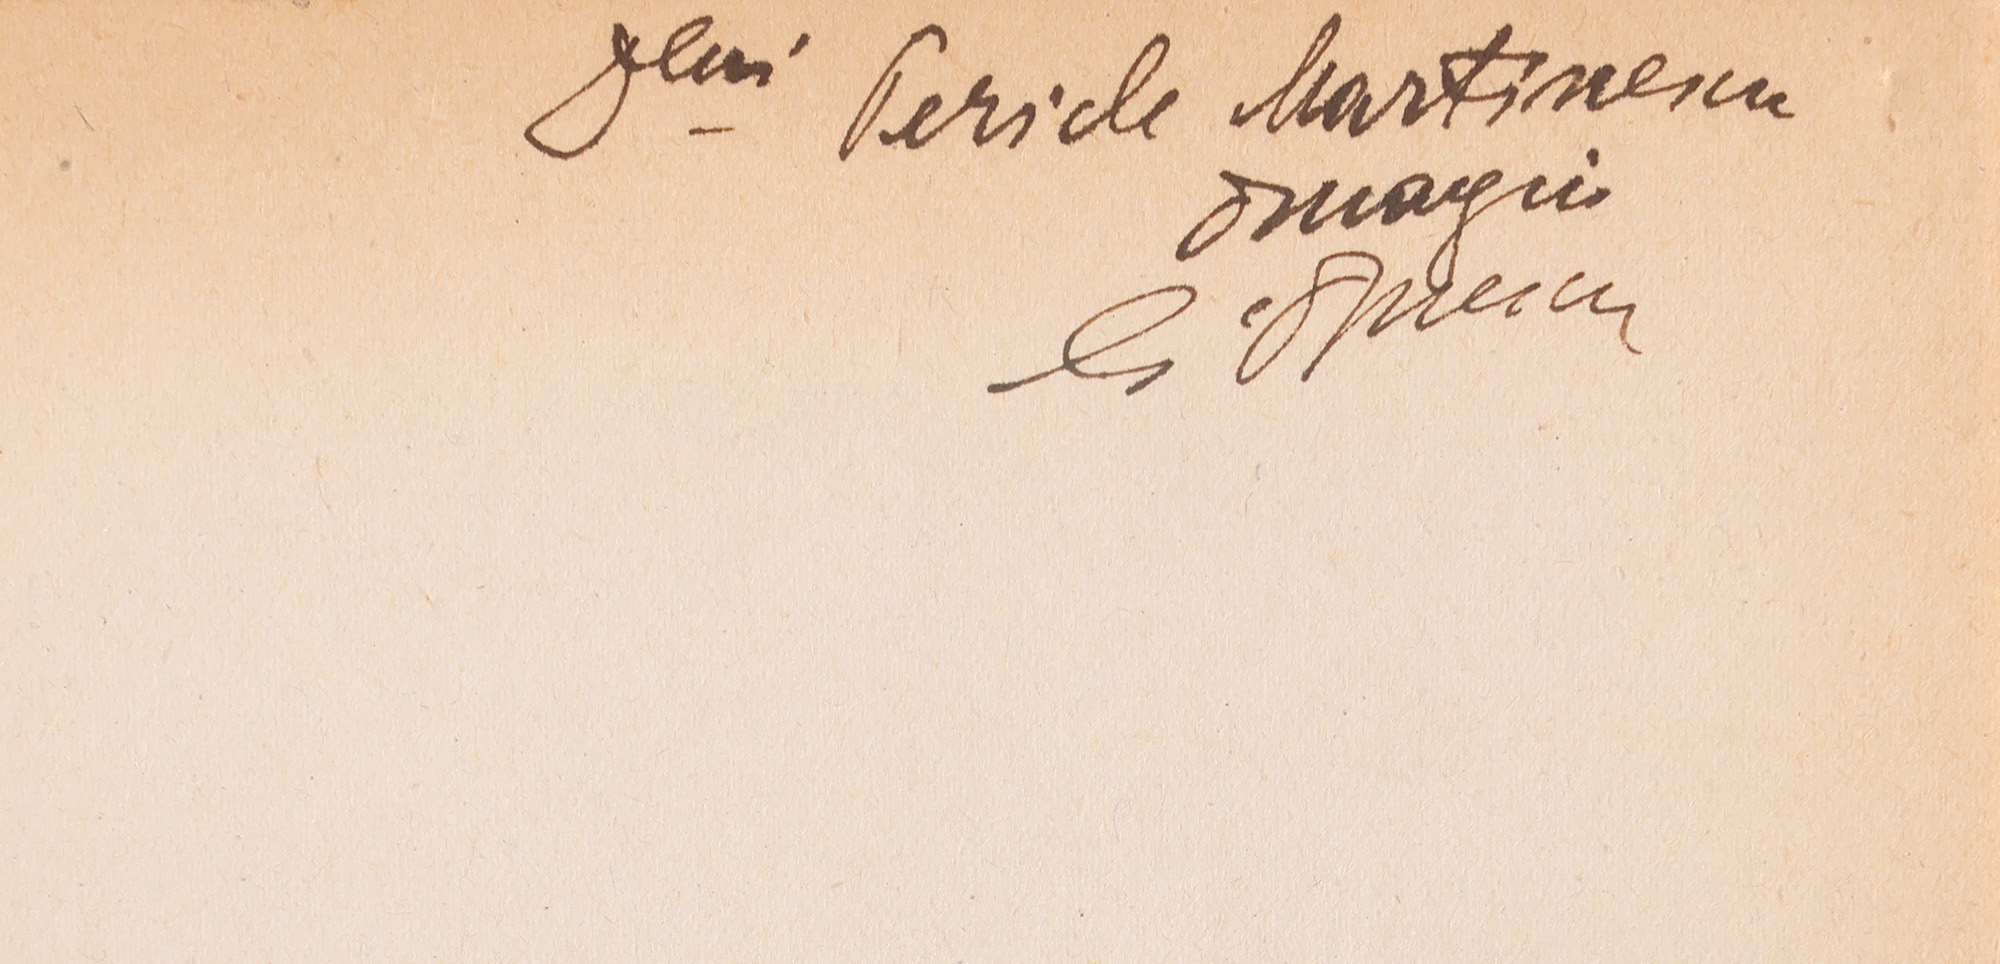 Dlui Pericle Martinescu
omagiu
G. Oprescu